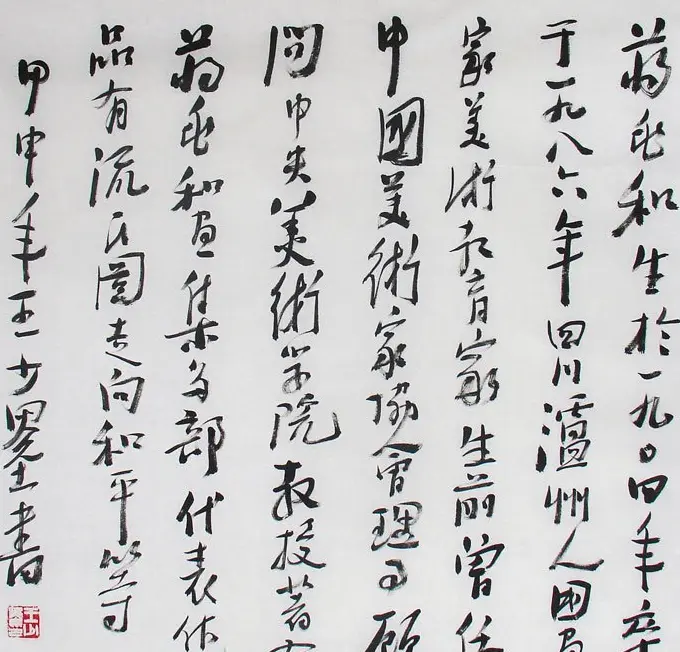 蒋兆和生於一九〇四年卒
于一九八六年四川瀘州人国画
家美術教育家生前曾任
中國美術家協會理事顾
问中央美術学院教授著有
蒋兆和画集多部代表作
品有流民圖走向和平等
甲申年王少墨書